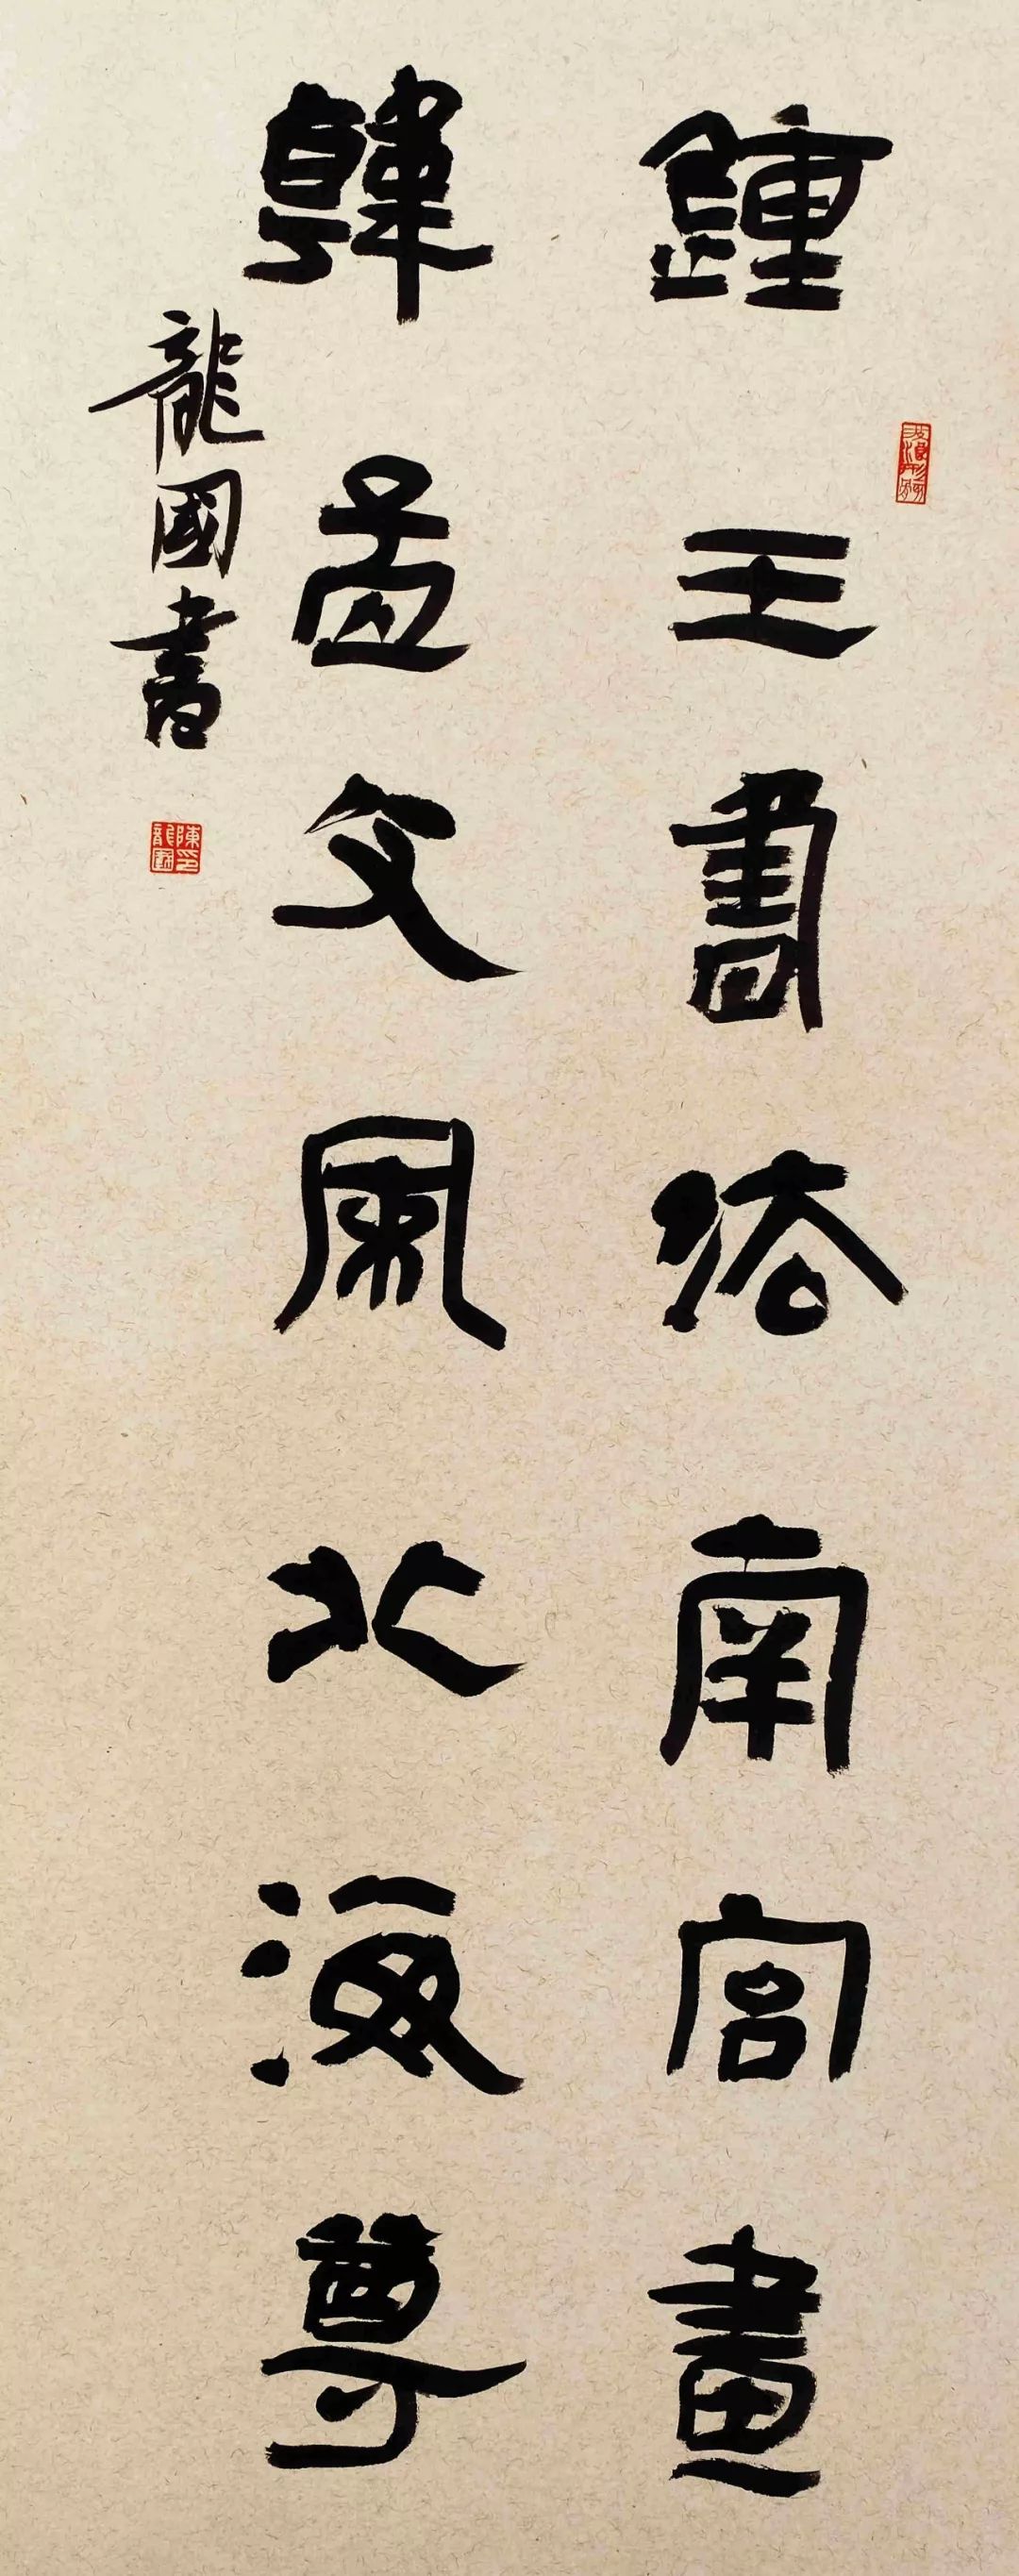 鍾王書法南宮畫
韓孟文風北海尊
龍國書
陳龍國印